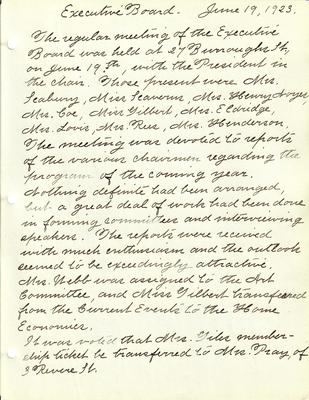 Executive Board. June 19, 1923.
The regular meeting of the Executive
Board was held at 27 Burroughs St,
on June 19th, with the President in
the chair. Those present were Mrs.
Seabury, Miss Seaverns, Mrs. Henry Noyes,
Mrs. Coe, Miss Gilbert, Mrs. Eldridge,
Mrs. Lovis, Mrs. Rees, Mrs. Henderson.
The meeting was devoted to reports
of the various chairmen regarding the
program of the coming year.
Nothing definite had been arranged,
but a great deal of work had been done
in forming committees and interviewing
speakers. The reports were received
with much enthusiasm and the outlook
seemed to be exceedingly attractive.
Mrs. Webb was assigned to the Art
Committee, and Miss Gilbert transferred
from the Current Events to the Home
Economics.
It was voted that Mrs. Files member-
ship ticket be transferred to Mrs. Pray, of
3 Revere St.